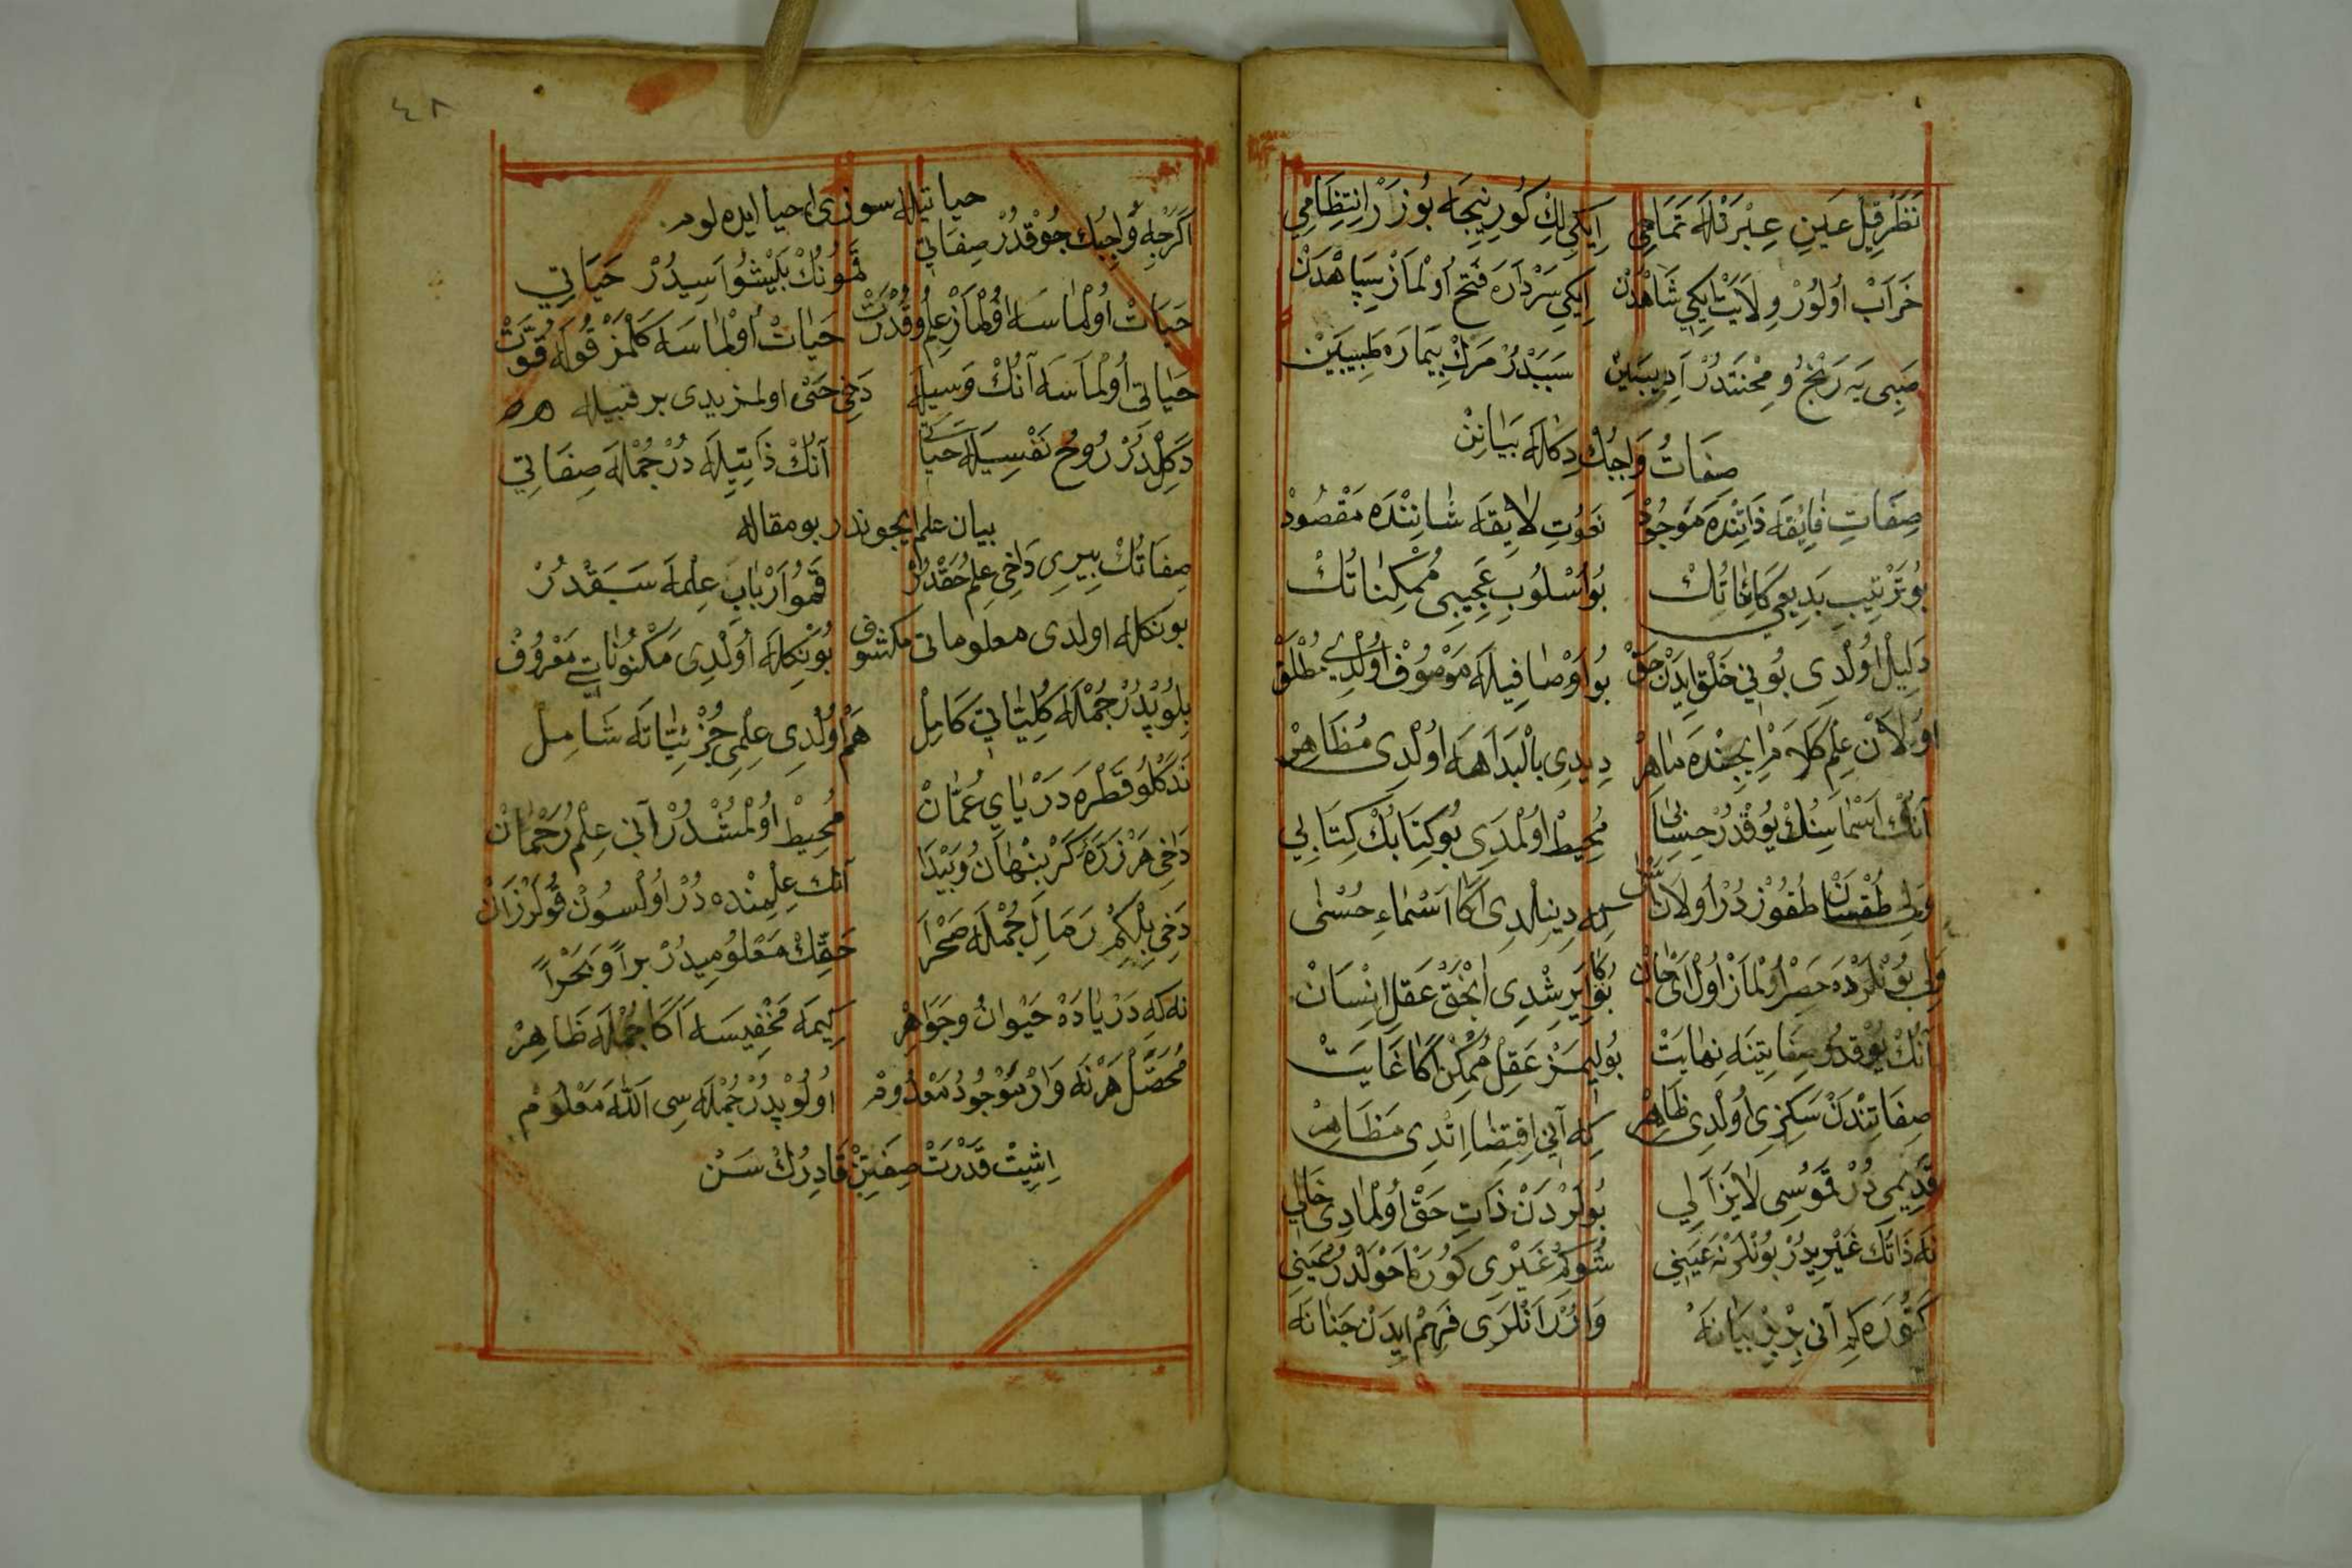 نَظَرْ قِيلْ عَينِ عِبْرَتْلَه تَمَامِي
اِيكِي لِكْ كُورِنِيجَه بُوزَرْ اِنْتِظَامِي
خَرَابْ اُولُورْ وِلَايَتْ اِيكِي شَاهْدَنْ
اِيكِي سَرْدَارَه فَتْح اُولْمَازْ سِپَاهْدَنْ
صَبِى يَه رَنْجُ و مِحْنَتْدُرْ اَدِيبَيْنْ
سَبَبْدُرْ مَرْكِ بِيمَارَه طَبِيبَيْنْ
صِفَاتُ وَاجِبُكْ دِكلَه بَيَانِنْ
صِفَاتِ فَائِقَه ذَاتِنْدَه مَوْجُودْ
نَعُوتِ لَايِقَه شَانِنْدَه مَقْصُودْ
بُو تَرْتِيبِ بَدِيعِي كَائِنَاتُكْ
بُو اُسْلُوبِ عَجِيبِى مُمْكِنَاتُكْ
دَلِيلْ اُولْدِى بُونِي خَلْق اِيدَنْ حَقْ
بُو اَوْصَافِيلَه مَوْصُوفْ اُولْدِى مُطْلَقْ
اُولَانْ عِلْمِ كَلَامْ اِيجِنْدَه مَاهِرْ
دِيدِى بِالْبَدَاهَه اُولْدِى مُظَاهِرْ
آنُكْ اَسْمَاسِنُكْ يُوقْدُرْ حِسَابِى
مُحِيطْ اُولْمَدِى بُو كِتَابُكْ كِتَابِي
وَلِى طُقْسَانْ طُقُوزْدُرْ اُولَانْ
كه دِينِلْدِى اَكَا اَسْمَاءِ حُسْنٰى
وَلِى بُونْلَرْدَه حَصْر اُولْمَازْ اُولْ اَىْ جَانْ
بُوكَا اِيرِشْدِى اَنْجَقْ عَقلِ اِنْسَانْ
آنُكْ يُوقْدُرْ صِفَاتِنَه نِهَايَتْ
بُولِيمَزْ عَقِلْ مُمْكِنْ اَكَا غَايَتْ
صِفَاتِنْدَنْ سَكِزِى اُولْدِى ظَاهِرْ
كِه آنِي اِقْتِضَا اِتْدِى مَظَاهِرْ
قَدِيمِى دُرْ قَمُوسِى لَا يَزَالِي
بُولَرْدَنْ ذَاتِ حَقْ اُولْمَادِى خَالِي
نَه ذَاتُكْ غَيْرِيدُرْ بُونْلَرْ نَه عَيْنِي
شُوكِمْ غَيْرِى كُورَرْ اَحْوَلْدُرْ عَيْنِي
كَتُورَه كِه آنِى بِزْ بَيَانَه
وَارُرْ آنْلَرِى فَهْم اِيدَنْ جَنَانَه
٤٨
حياتيله سوزى احيا ايده لوم
اَكَرْجِه وَاجِبُكْ چُوقْدُرْ صِفَاتِي
قَمُونُكْ پيْشُوَاسِيدُرْ حَيَاتِي
حَيَاتْ اُولْمَاسَه اُولْمَازْ عِلْمُ و قُدْرَتْ
حَيَاتْ اُولْمَاسَه كَلْمَزْ قُولَه قُوَّتْ
حَيَاتِى اُولْمَاسَه آنُكْ وَسِيلَه
دَخِى حَتّى اولمزيدى بر قبيله
دَكِلْدُرْ رُوح نَفْسِيلَه حَيَاتِي
آنُكْ ذَاتِيلَه دُرْ جُمْلَه صِفَاتِي
بيان علم ايجوندر بو مقاله
صِفَاتُكْ بِيرِى دَاخِى عِلْمِ حَقْدُرْ
قَمُو اَرْبَابِ عِلْمَه سَبَقْدُرْ
بونكله اولدى معلوماتى مكشوف
بُونْكِلَه اُولْدِى مَكْنُونَاتِى مَعْرُوفْ
بِلُوپْدُرْ جُمْلَه كُلِّيَّاتِي كَامِلْ
هَمْ اُولْدِى عِلْمِى جُزْئِيَّاتَه شَامِلْ
نَدَكْلُو قَطْرَه دَرْيَايِ عُمَّانْ
مُحِيطْ اُولْمُشْدُرْ آنِي عِلْمِ رَحْمَانْ
دَاخِى هَر ذَرَّه كَرْ پِنْهَانُ و پَيْدَا
آنك عِلْمِنْده دُرْ اُولْسُونْ
دَخِى بِلْكِمْ رَمَالِ جُمْلَه صَحْرَا
حَقِّكْ مَعْلُومِيدُرْ بَراً وَبَحْراً
نه كه دَرْيَادَه حَيْوَانُ و جَوَاهِرْ
كِيمَه مَخْفِيسَه اَكَا جُمْلَه ظَاهِرْ
مُحَصَّلْ هَرْنَه وَارْ مَوْجُودُ مَعْدُومْ
اُولُوپْدُرْ جُمْلَه سِى اَللّٰه مَعْلُومْ
اِشِيتْ قُدْرَتْ صِفَتِنْ قَادِرُكْ سَنْ